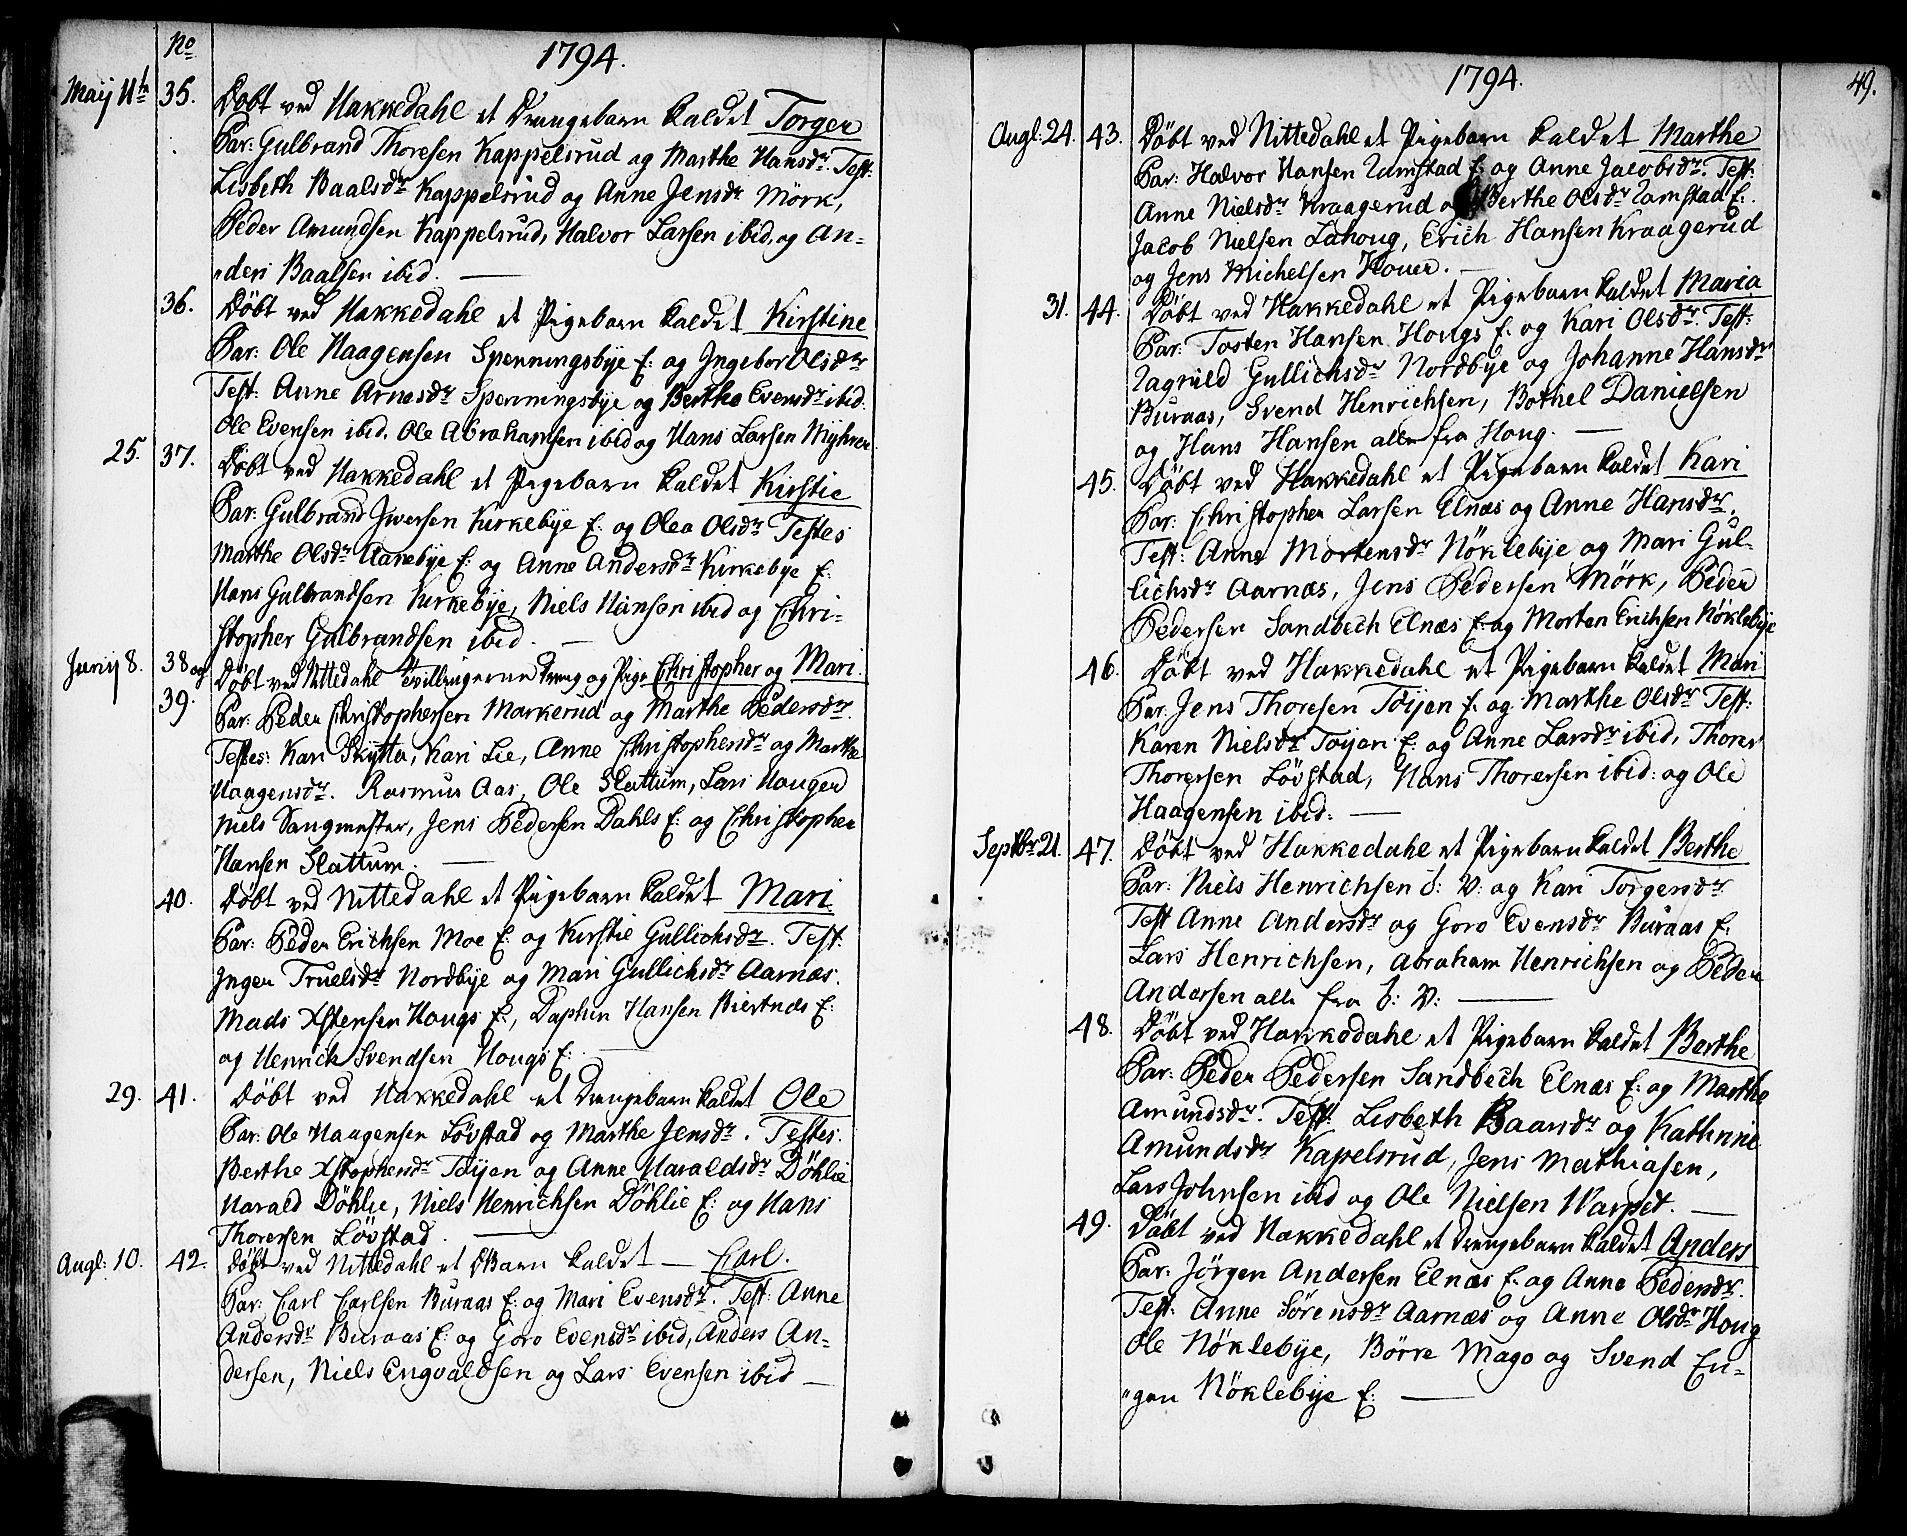 No 1794.
Maij 11te 35. Döbt ved Hakkedahl et Drengebarn kaldet Torger
Par: Gulbrand Thoresen Kappelsrud og Marthe Hansdr. Test:
Lisbeth Baalsdr Kappelsrud og Anne Jensdr Mörk,
Peder Amundsen Kappelsrud, Halvor Larsen ibid, og An-
„ders Baalsen ibid.
36. Döbt ved Hakkedahl et Pigebarn kaldet Kirstine
Par: Ole Haagensen Spenningsbye E: og Ingebor Olsdr
Test: Anne Arnesdr Spenningsbye og Berthe Evensdr ibid.
Ole Evensen ibid. Ole Abrahamsen ibid og Hans Larsen Myhrer
25. 37. Döbt ved Hakkedahl et Pigebarn kaldet Kirstie
Par: Gulbrand Iwersen Kirkebye E: og Olea Olsdr Testes
Marthe Olsdr Aanebye E: og Anne Andersdr Kirkebye E:
Hans Gulbrandsen Kirkebye, Niels Hansen ibid og Chri-
stopher Gulbrandsen ibid.
Junij 8. 38 og Döbt ved Nittedahl Tvillingerne Dreng og Pige Christopher og Mari.
39. Par: Peder Christophersen Markerud og Marthe Pedersdr.
Testes: Kari Skytta, Kari Lie, Anne Christophersdr og Marthe
Haagensdr. Rasmus Aas, Ole Slattum, Lars Hauger
Niels Sangmester, Jens Pedersen Dahls E: og Christopher
Hansen Slattum.
40. Döbt ved Nittedahl et Pigebarn kaldet Mari
Par: Peder Erichsen Moe E: og Kirstie Gullichsdr. Test:
Inger Truelsdr Nordbye og Mari Gullichsdr Aarnæs.
Mads Xstensen Hougs E:, Daphin Hansen Biertnæs E:
og Henrich Svendsen Hougs E:
29. 41. Döbt ved Hakkedahl et Drengebarn kaldet Ole
Par: Ole Haagensen Lövstad og Marthe Jensdr. Testes.
Berthe Xstophersdr Töijen og Anne Haraldsdr Döhlie
Harald Döhlie, Niels Henrichsen Döhlie E: og Hans
Thoresen Lövstad.
Augl: 10. 42. Döbt ved Nittedahl et DBarn kaldet — Carl.
Par: Carl Carlsen Buraas E: og Mari Evensdr. Test: Anne
Andersdr Buraas E: og Goro Evensdr ibid, Anders An-
dersen, Niels Engvaldsen og Lars Evensen ibid —
1794. 49.
Augl: 24. 43. Döbt ved Nittedahl et Pigebarn kaldet Marthe
Par: Halvor Hansen Ramstad E: og Anne Jacobsdr. Test:
Anne Nielsdr Kraagerud og Berthe Olsdr Ramstad E:.
Jacob Nielsen Lahoug, Erich Hansen Kraagerud
og Jens Michelsen Houer.
31. 44. Döbt ved Hakkedahl et Pigebarn kaldet Maria
Par: Tosten Hansen Hougs E: og Kari Olsdr. Test:
Ragnild Gullichsdr Nordbye og Johanne Hansdr
Buraas, Svend Henrichsen, Bothel Danielsen
og Hans Hansen alle fra Houg.
45. Döbt ved Hakkedahl et Pigebarn kaldet Kari
Par: Christopher Larsen Elnæs og Anne Hansdr.
Test: Anne Mortensdr Nöklebye og Mari Gul-
lichsdr Aarnæs, Jens Pedersen Mörk, Peder
Pedersen Sandbech Elnæs E: og Morten Erichsen Nöklebye
46. Döbt ved Hakkedahl et Pigebarn kaldet Mari
Par: Jens Thoresen Töijen E: og Marthe Olsdr Test:
Karen Nielsdr Töijen E: og Anne Larsdr ibid, Thorer
Thorersen Lövstad, Hans Thorersen ibid: og Ole
Haagensen ibid:
Septbr 21. 47. Döbt ved Hakkedahl et Pigebarn kaldet Berthe
Par: Niels Henrichsen J: V: og Kari Torgersdr
Test Anne Andersdr og Goro Evensdr Buraas E:
Lars Henrichsen, Abraham Henrichsen og Peder
Andersen alle fra J: V:
48. Döbt ved Hakkedahl et Pigebarn kaldet Berthe
Par: Peder Pedersen Sandbech Elnæs E: og Marthe
Amundsdr. Test: Lisbeth Baarsdr og Kathrine
Amundsdr Kapelsrud, Jens Mathiasen,
Lars Johnsen ibid og Ole Nielsen Warpet.
49. Döbt ved Hakkedahl et Drengebarn kaldet Anders
Par: Jörgen Andersen Elnæs E: og Anne Pedersdr.
Test: Anne Sörensdr Aarnæs og Anne Olsdr Houg
Ole Nöklebye, Börre Mago og Svend En-
„gen Nöklebye E: